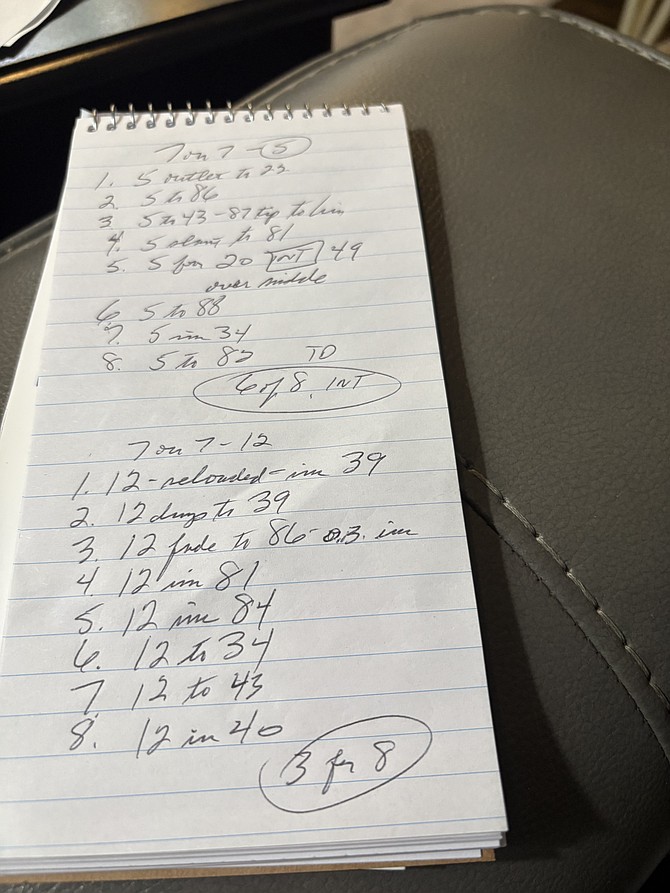 7 on 7 - 5
1. 5 outlet to 23
2. 5 to 86
3 5 to 43 - 87 tip to him
4. 5 slant to 81
5. 5 for 20 INT 49
over middle
6 5 to 88
7. 5 inc 34
8. 5 to 82 TD
6 of 8, INT
7 on 7 - 12
1. 12 - reloaded - inc 39
2. 12 dump to 39
3. 12 fade to 86 - O.B. inc
4 12 inc 81
5. 12 inc 84
6. 12 to 34
7 12 to 43
8. 12 in 40
3 for 8